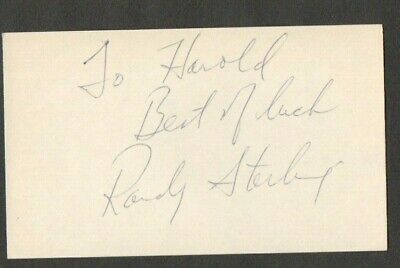 To Harold
Best of luck
Randy Sterling